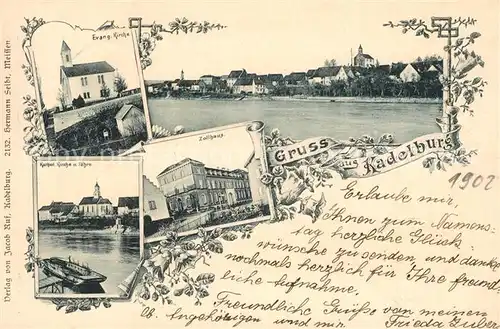 Evang. Kirche
Zollhaus.
Kathol. Kirche u. Fähre
Gruss
aus
Kadelburg
1902
Verlag von Jacob Ruf, Kadelburg. 2132. Hermann Seibt, Meissen
Erlaube mir,
Ihnen zum Namens-
tag herzliche Glück-
wünsche zusenden und danke
nochmals herzlich für Ihre freund-
liche Aufnahme,
Freundliche Grüße von meinen
Angehörigen und mir Frieda Huber